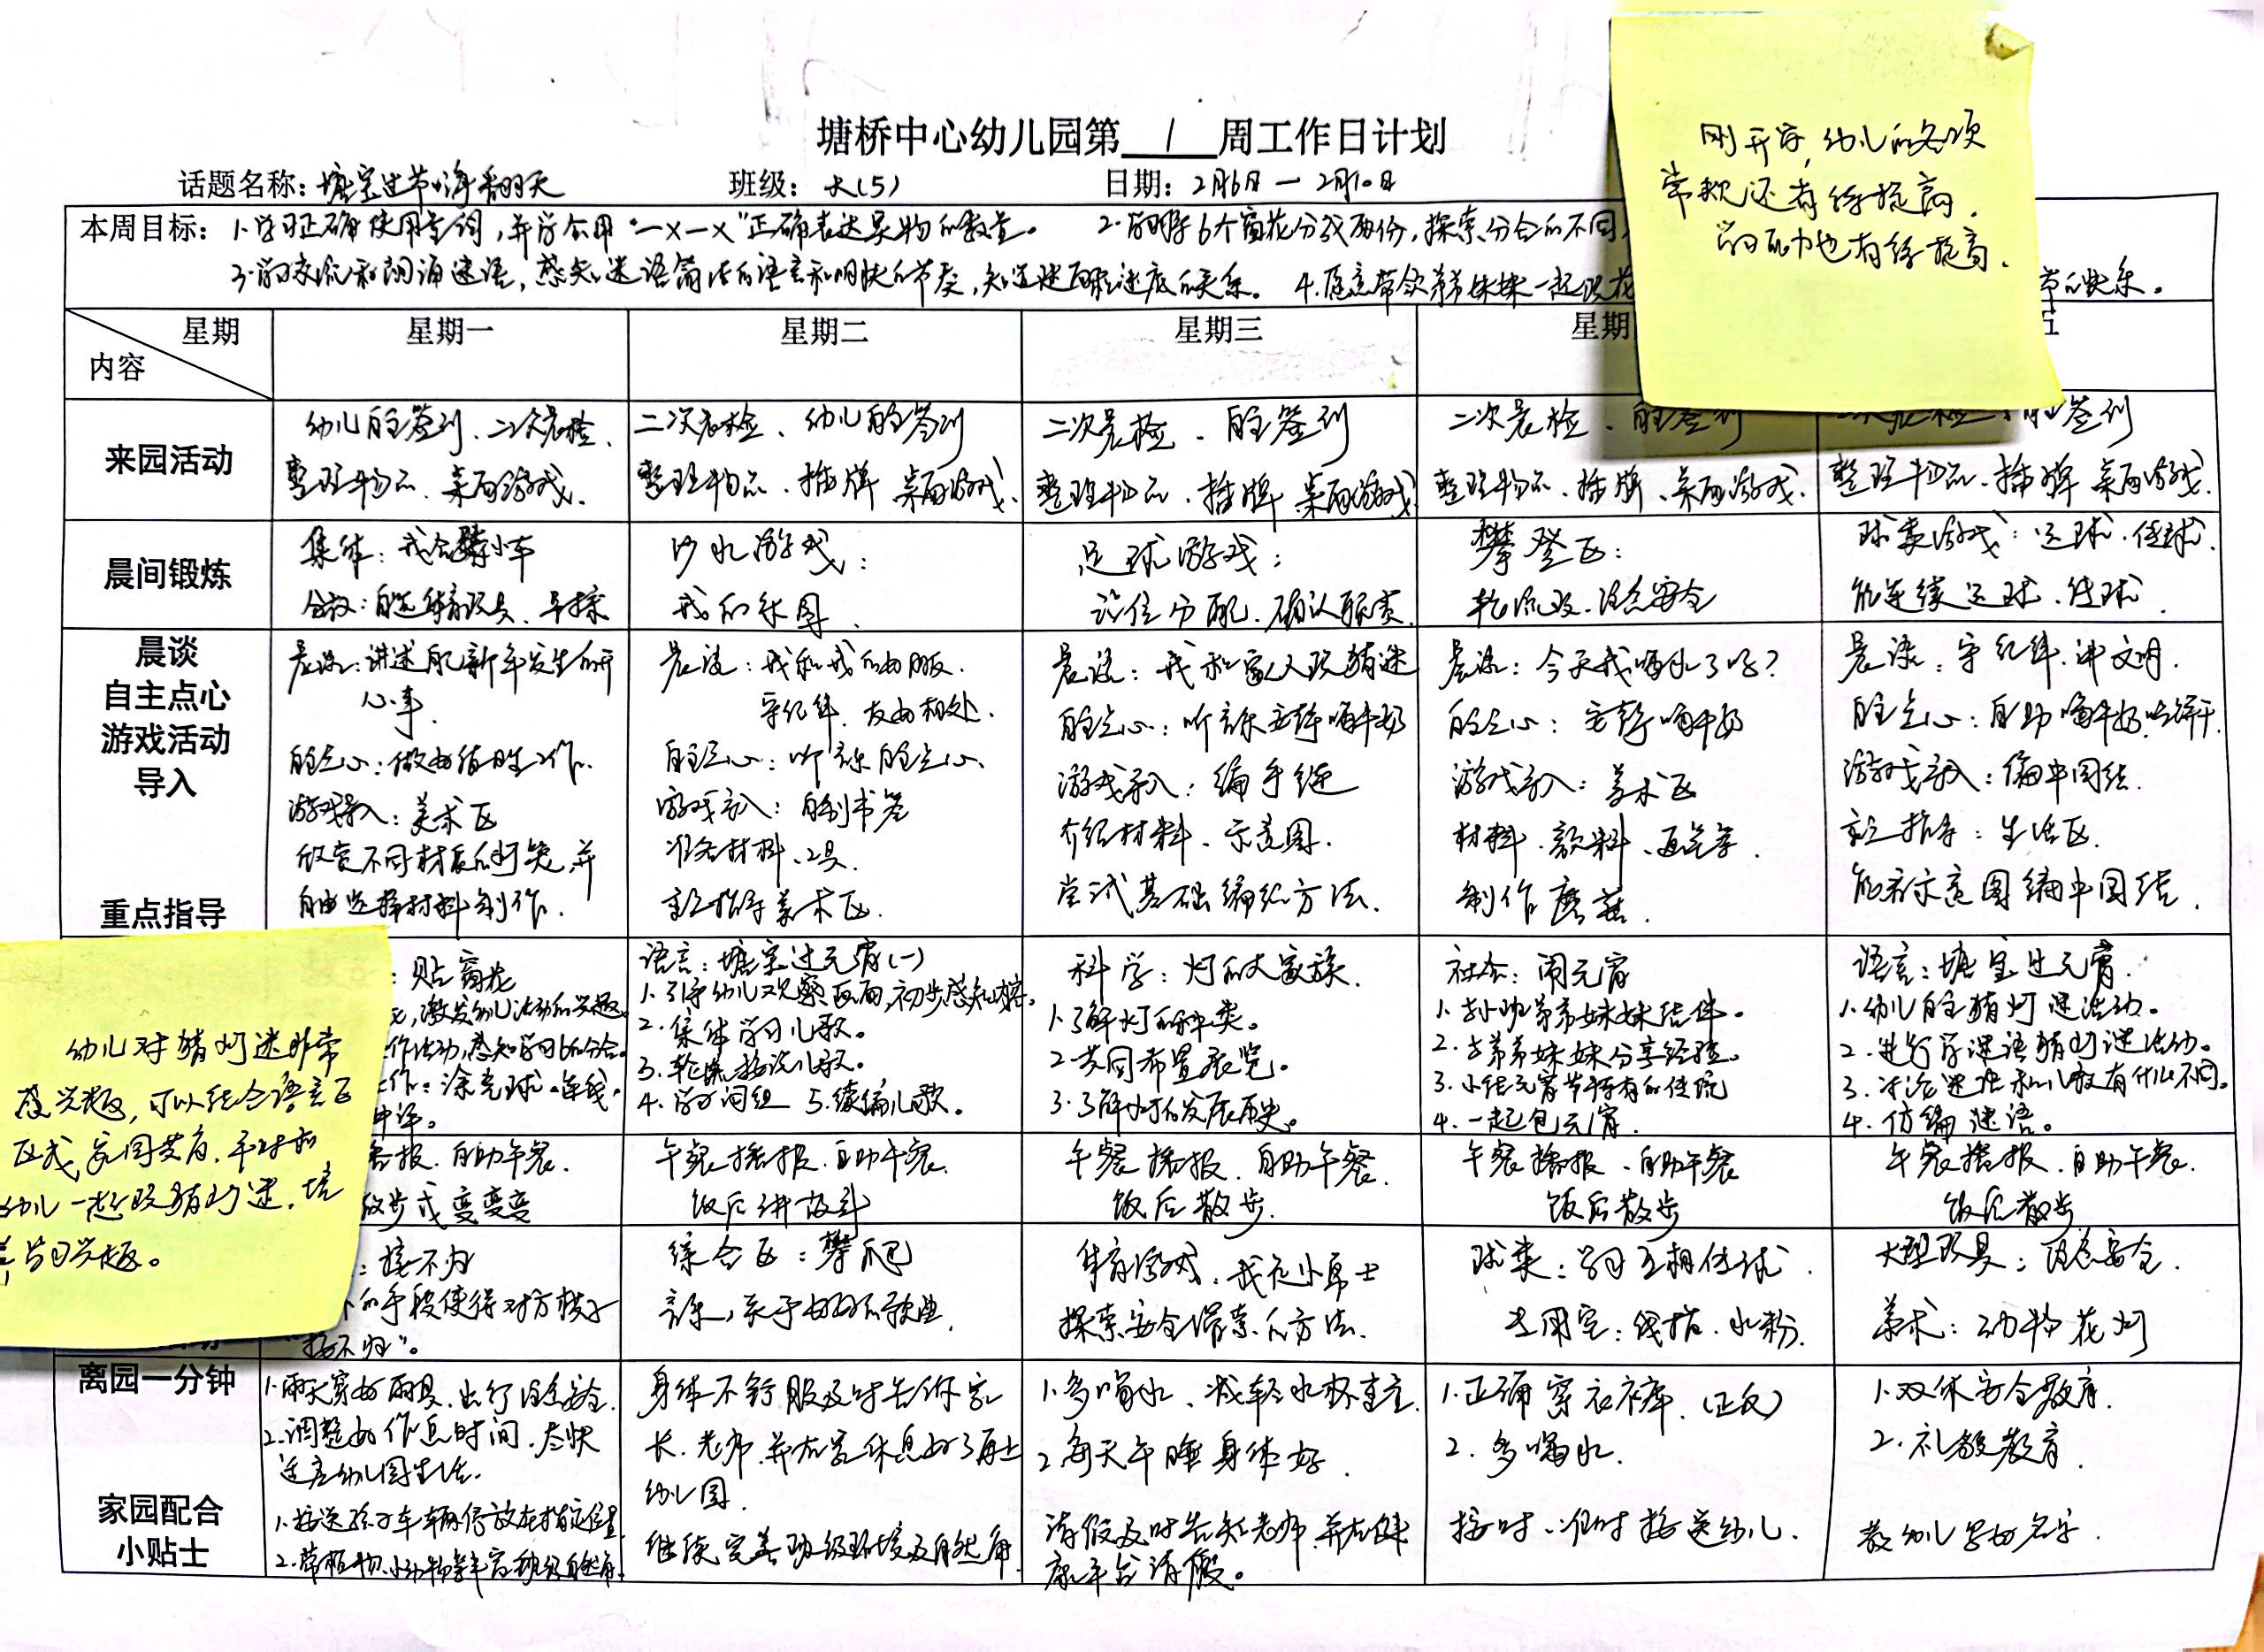 塘桥中心幼儿园第 1 周工作日计划
话题名称：塘宝过节嗨翻天 班级：大(5) 日期：2月6日—2月10日
本周目标：1.学习正确使用量词，并学会用“一×一×”正确表达果物的数量。 2.学习将6个窗花分成两份，探索分合的不同
3.学习交流和朗诵谜语，感知谜语简洁的语言和明快的节奏，知道谜面和谜底的关系。 4.愿意带领弟弟妹妹一起 节的快乐。
刚开学，幼儿的各项
常规还有待提高，
学习能力也有待提高。
星期
内容
星期一 星期二 星期三 星期
来园活动
幼儿自主签到、二次晨检、
整理物品、桌面游戏。
二次晨检、幼儿自主签到
整理物品、插牌 桌面游戏、
二次晨检、自主签到
整理物品、插牌 桌面游戏
二次晨检、自主签到
整理物品、插牌、桌面游戏、
二次晨检、自主签到
整理物品、插牌 桌面游戏、
晨间锻炼
集体：我会骑小车
分散：自选体育玩具、早操
沙水游戏：
我的乐园、
足球游戏：
站位分配、确认职责
攀登区：
轮流玩、注意安全
球类游戏：运球、传球、
能连续运球、传球、
晨谈
自主点心
游戏活动
导入
重点指导
晨谈：讲述自己新年发生的开
心事、
自主点心：做好值日生工作、
游戏导入：美术区
欣赏不同材质的灯笼，并
自由选择材料制作、
晨谈：我和我的好朋友、
守纪律、友好相处、
自主点心：听音乐自主点心、
游戏导入：自制书签
准备材料、工具
重点指导美术区、
晨谈：我和家人玩猜谜
自主点心：听音乐安静喝牛奶
游戏导入：编手链
介绍材料、示意图、
尝试基础编织方法、
晨谈：今天我喝水了吗？
自主点心：安静喝牛奶
游戏导入：美术区
材料、颜料、
制作蘑菇、
晨谈：守纪律、讲文明、
自主点心：自助喝牛奶、吃饼干、
游戏导入：编中国结、
重点指导：生活区、
能看示意图编中国结、
幼儿对猜灯谜非常
感兴趣，可以结合语言区
区域，家园共育，平时和
幼儿一起玩猜灯谜，培
养学习兴趣。
：贴窗花
，激发幼儿活动的兴趣。
作活动，感知学习6的分合。
作：涂亮球、连线、
评。
语言：塘宝过元宵(一)
1.引导幼儿观察画面，初步感知内容。
2.集体学习儿歌。
3.轮流接说儿歌。
4.学习词组 5.续编儿歌。
科学：灯的大家族、
1.了解灯的种类。
2.共同布置展览。
3.了解灯的发展历史。
社会：闹元宵
1.与小班弟弟妹妹结伴。
2.与弟弟妹妹分享经验。
3.小结元宵节特有的传统
4.一起包元宵、
语言：塘宝过元宵、
1.幼儿自主猜灯谜活动。
2.进行学谜语猜灯谜活动。
3.讨论谜语和儿歌有什么不同。
4.仿编谜语。
播报、自助午餐、
散步或变变变
午餐播报、自助午餐、
饭后讲故事
午餐播报、自助午餐、
饭后散步、
午餐播报、自助午餐
饭后散步
午餐播报、自助午餐、
饭后散步
：接不归
的手段使得对方棋子
“接不归”。
综合区：攀爬
音乐：关于好好的歌曲
体育游戏、我是小勇士
探索安全滑索的方法、
球类：学习互相传球、
专用室：线描、水粉、
大型玩具：注意安全、
美术：动物花灯
离园一分钟
1.雨天穿好雨具、出行注意安全、
2.调整好作息时间、尽快
适应幼儿园生活、
身体不舒服及时告诉家
长、老师、并在家休息好了再上
幼儿园、
1.多喝水、
2.每天午睡身体好、
1.正确穿衣裤、(正反)
2.多喝水、
1.双休安全教育、
2.礼貌教育、
家园配合
小贴士
1.接送孩子车辆停放在指定位置
2.带植物、小动物等丰富班级自然角、
继续完善班级环境及自然角
请假及时告知老师、并在健
康平台请假。
按时、准时接送幼儿、
教幼儿写好名字、